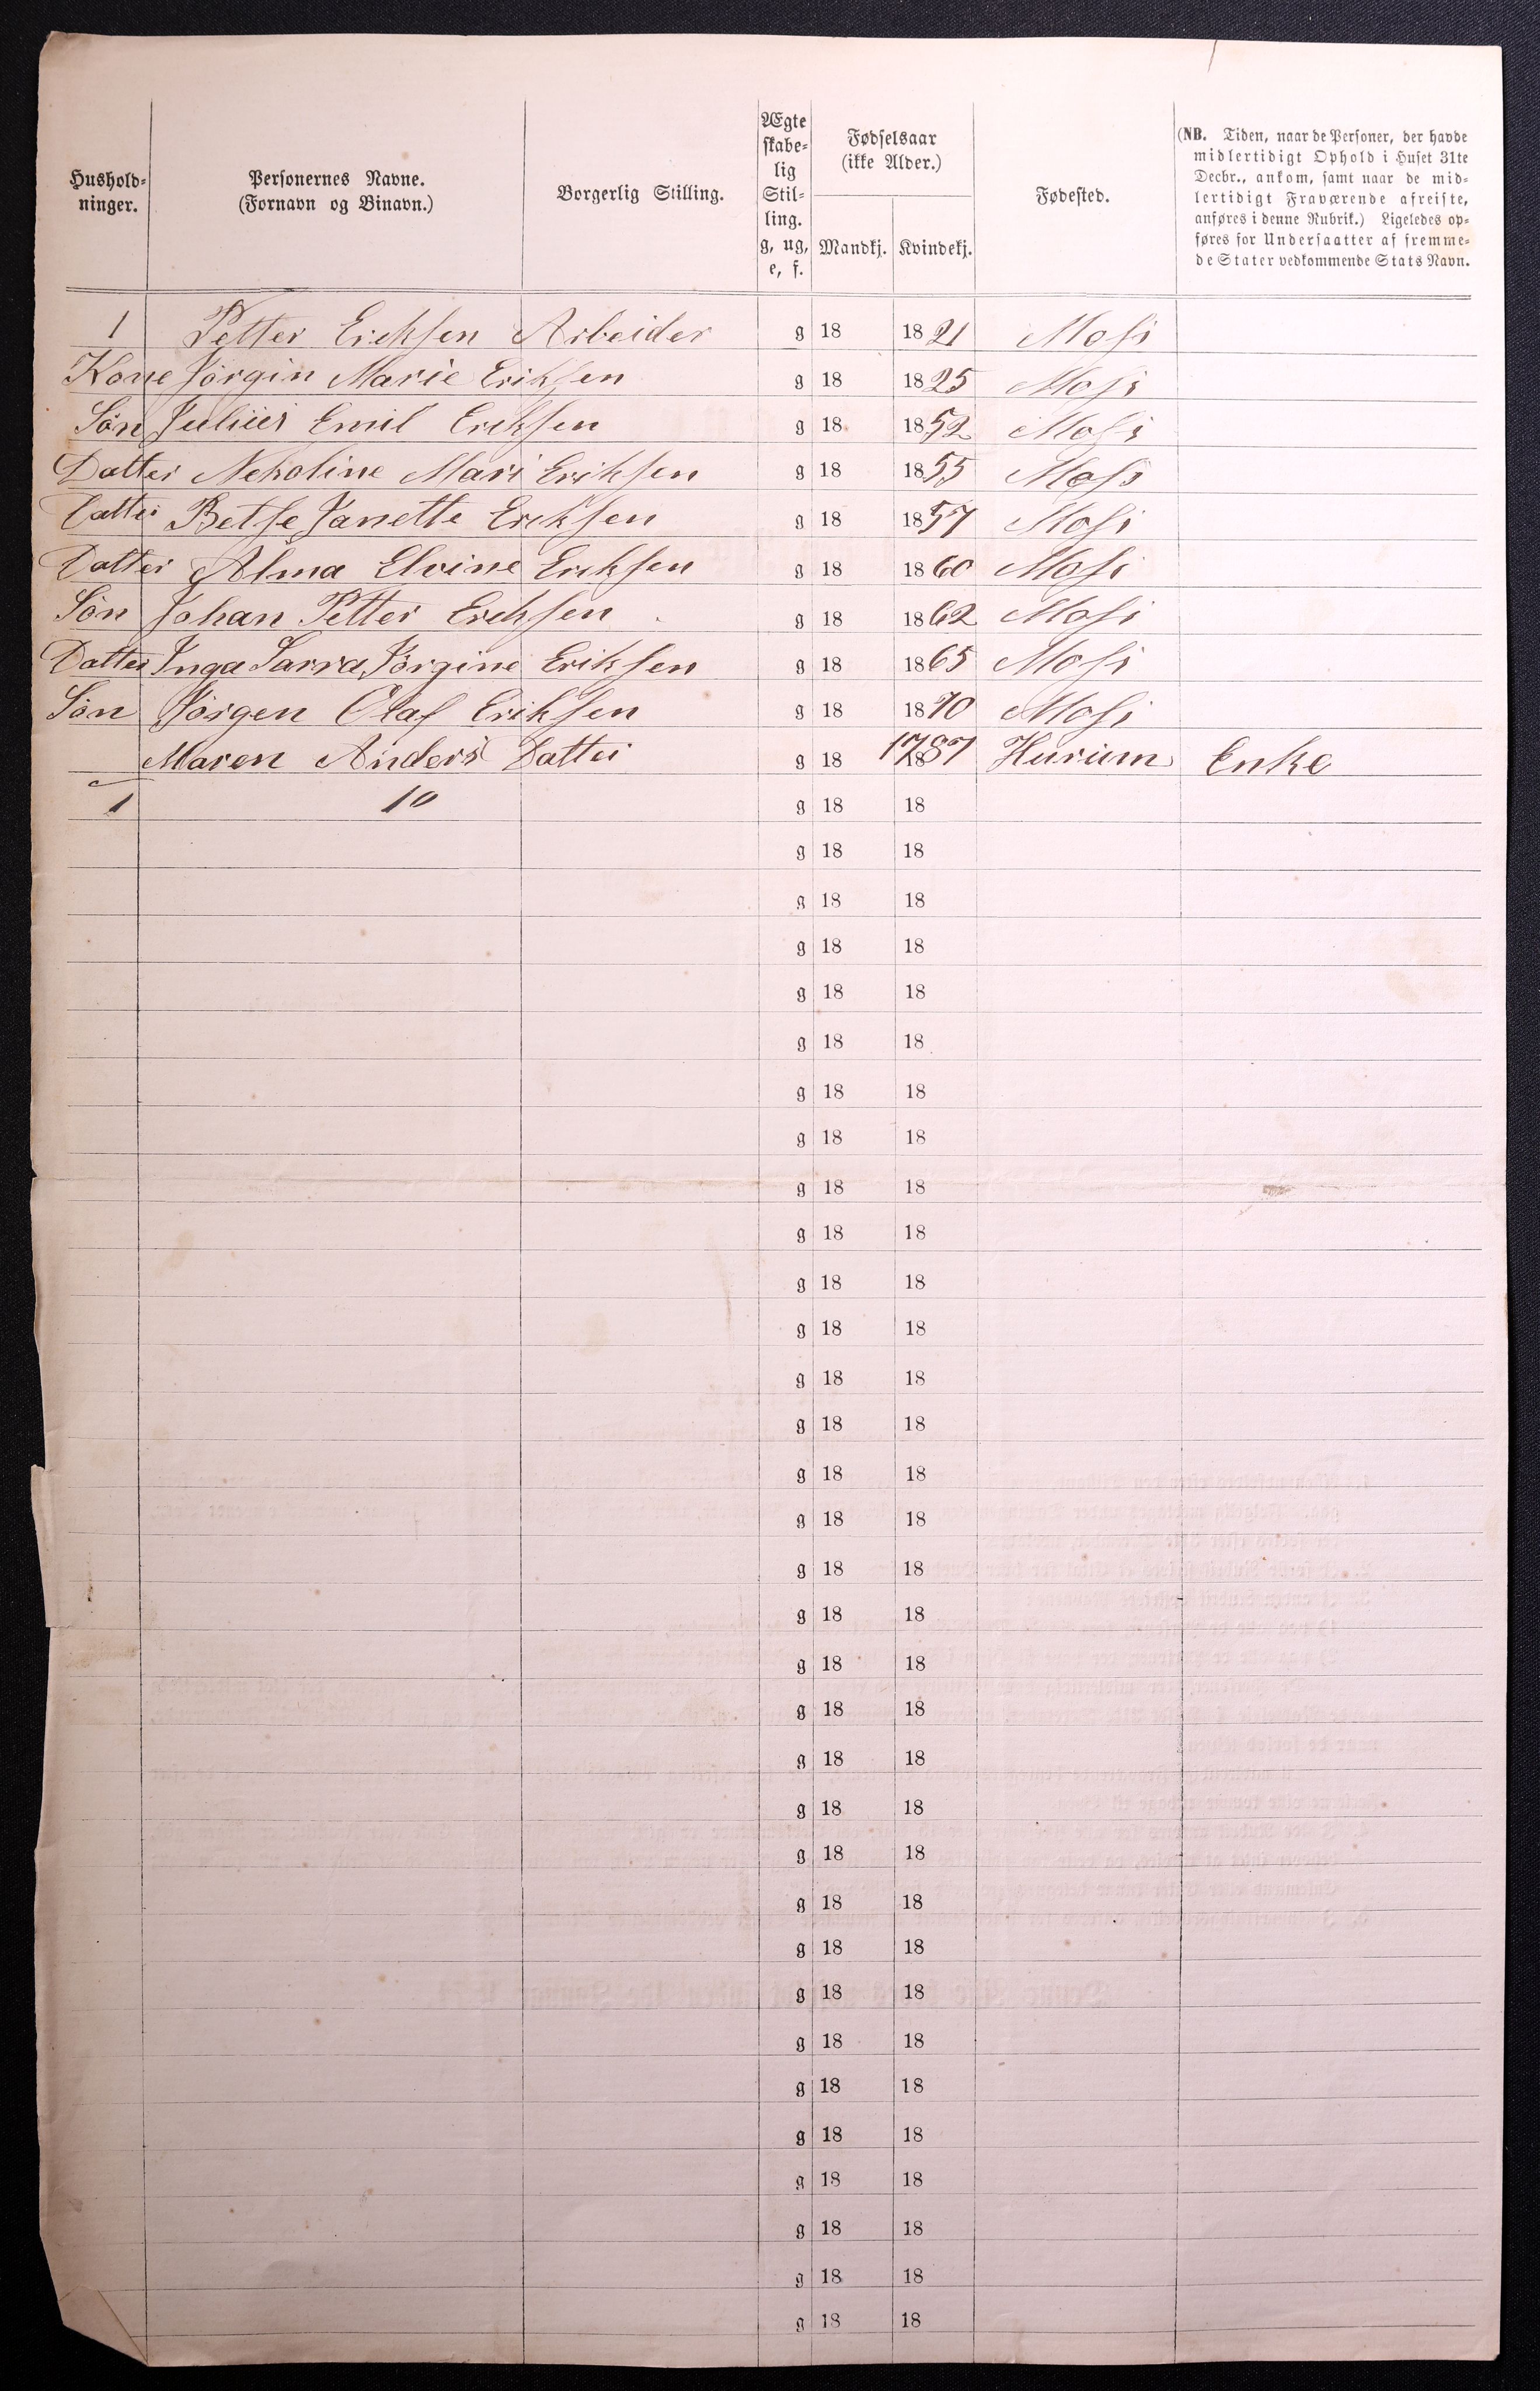 Hushold-
ninger.
Personernes Navne.
(Fornavn og Binavn.)
Borgerlig Stilling.
Ægte
skabe-
lig
Stil-
ling.
g, ug,
e, f.
Fødselsaar
(ikke Alder.)
Mandkj. Kvindekj.
Fødested.
(NB. Tiden, naar de Personer, der havde
midlertidigt Ophold i Huset 31te
Decbr., ankom, samt naar de mid-
lertidigt Fraværende afreiste,
anføres i denne Rubrik.) Ligeledes op-
føres for Undersaatter af fremme-
de Stater vedkommende Stats Navn.
1 Petter Ericksen Arbeider g 18 1821 Moss
Kone Jørgin Marie Eriksen g 18 1825 Moss
Søn Julius Emil Ericksen g 18 1852 Moss
Datter Nekoline Mari Eriksen g 18 1855 Moss
Datter Betse Janette Ericksen g 18 1857 Moss
Datter Alma Elvine Ericksen g 18 1860 Moss
Søn Johan Petter Ericksen g 18 1862 Moss
Datter Inga Sarra Jørgine Eriksen g 18 1865 Moss
Søn Jørgen Olaf Eriksen g 18 1870 Moss
Maren Anders Datter g 18 1787 Hurum Enke
1 10 g 18 18
g 18 18
g 18 18
g 18 18
g 18 18
g 18 18
g 18 18
g 18 18
g 18 18
g 18 18
g 18 18
g 18 18
g 18 18
g 18 18
g 18 18
g 18 18
g 18 18
g 18 18
g 18 18
g 18 18
g 18 18
g 18 18
g 18 18
g 18 18
g 18 18
g 18 18
g 18 18
g 18 18
g 18 18
g 18 18
g 18 18
g 18 18
g 18 18